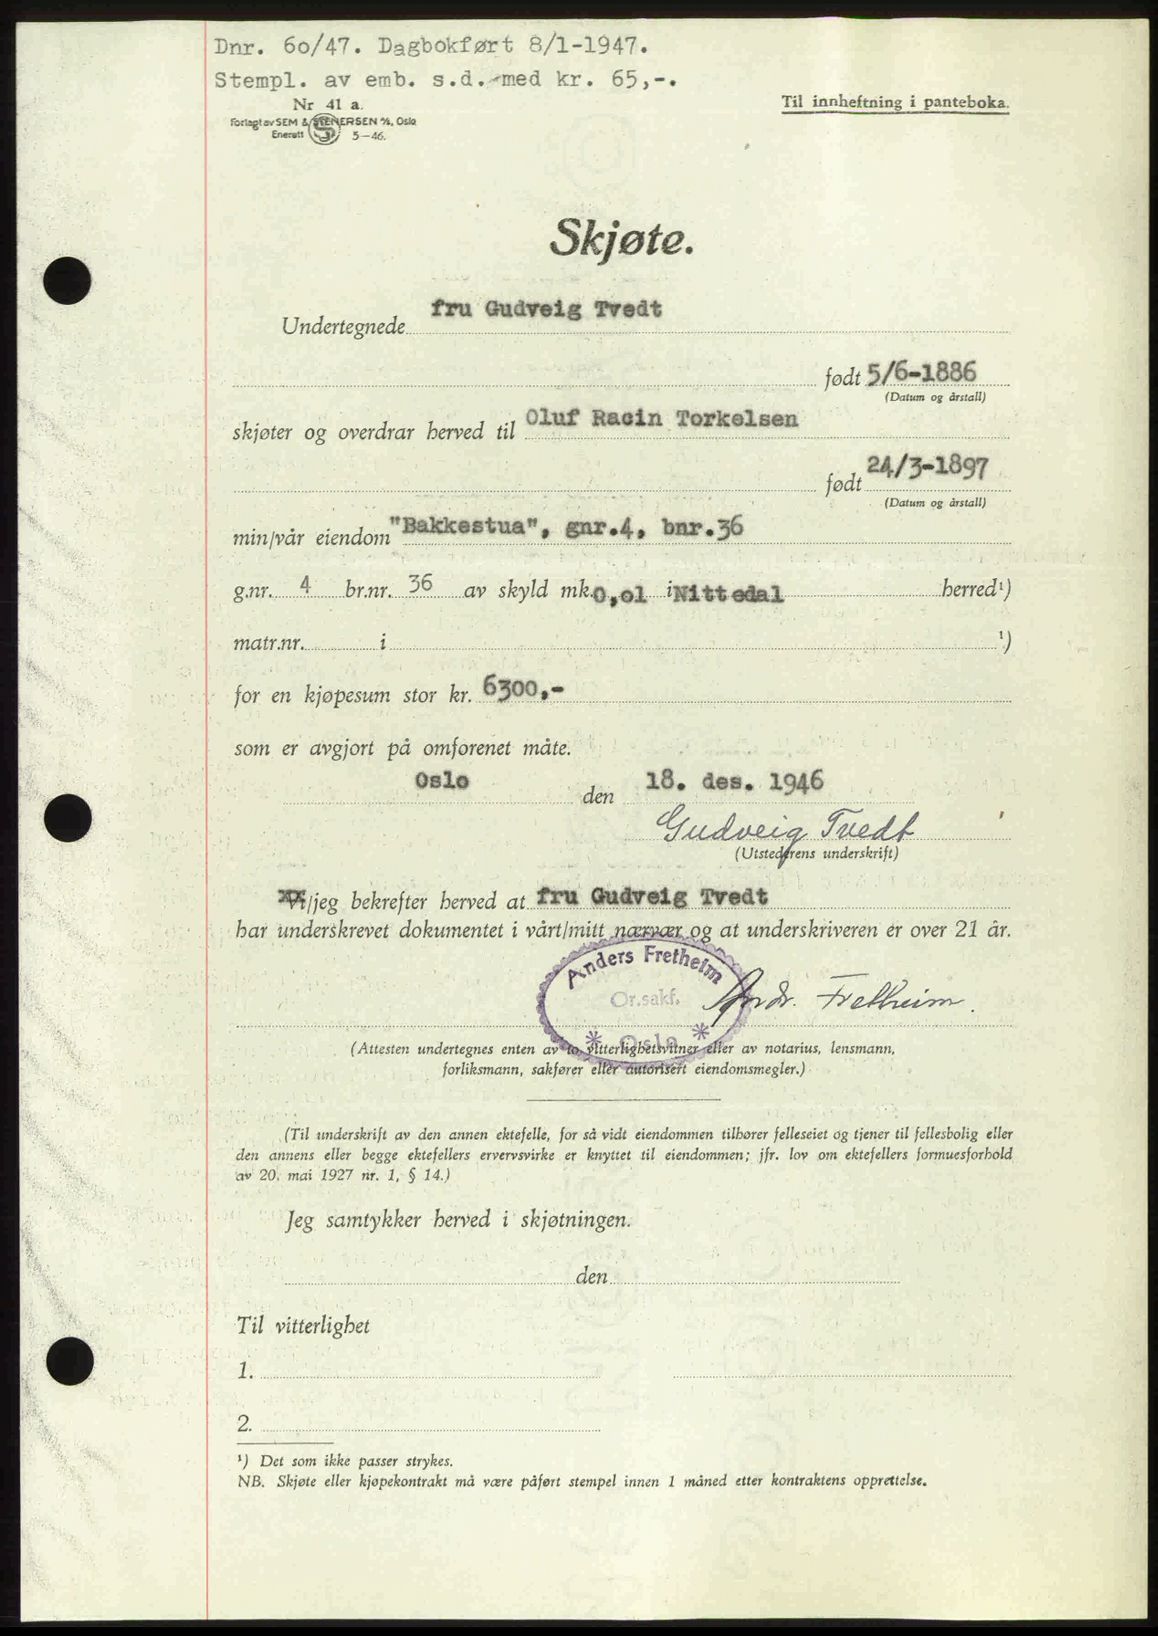 Dnr. 60/47. Dagbokført 8/1-1947.
Stempl. av emb. s.d. med kr. 65,-.
Nr 41 a.
Forlagt av SEM & STENERSEN A/S, Oslo
Enerett 5-46.
Til innheftning i panteboka.
Skjøte.
Undertegnede fru Gudveig Tvedt
født 5/6-1886
(Datum og årstall)
skjøter og overdrar herved til Oluf Racin Torkelsen
født 24/3-1897
(Datum og årstall)
min/vår eiendom "Bakkestua", gnr.4, bnr.36
g.nr. 4 br.nr. 36 av skyld mk. 0,01 i Nittedal herred¹)
matr.nr. i ¹)
for en kjøpesum stor kr. 6300,-
som er avgjort på omforenet måte.
Oslo den 18. des. 1946
Gudveig Tvedt
(Utstederens underskrift)
Vi/jeg bekrefter herved at fru Gudveig Tvedt
har underskrevet dokumentet i vårt/mitt nærvær og at underskriveren er over 21 år.
Anders Fretheim
Or.sakf.
* Oslo *
Andr. Fretheim.
(Attesten undertegnes enten av to vitterlighetsvitner eller av notarius, lensmann,
forliksmann, sakfører eller autorisert eiendomsmegler.)
(Til underskrift av den annen ektefelle, for så vidt eiendommen tilhører felleseiet og tjener til fellesbolig eller
den annens eller begge ektefellers ervervsvirke er knyttet til eiendommen; jfr. lov om ektefellers formuesforhold
av 20. mai 1927 nr. 1, § 14.)
Jeg samtykker herved i skjøtningen.
den
Til vitterlighet
1.
2.
¹) Det som ikke passer strykes.
NB. Skjøte eller kjøpekontrakt må være påført stempel innen 1 måned etter kontraktens opprettelse.